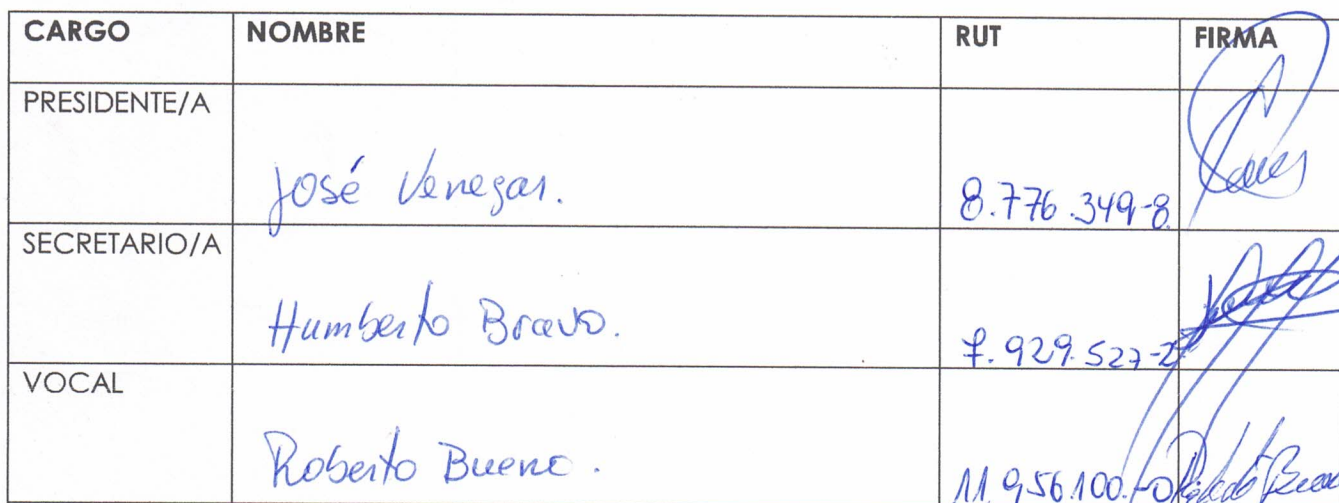 CARGO NOMBRE RUT FIRMA
PRESIDENTE/A
José Venegas. 8.776.349-8
SECRETARIO/A
Humberto Bravo. 7.929.527-2
VOCAL
Roberto Bueno. 11.956.100-0